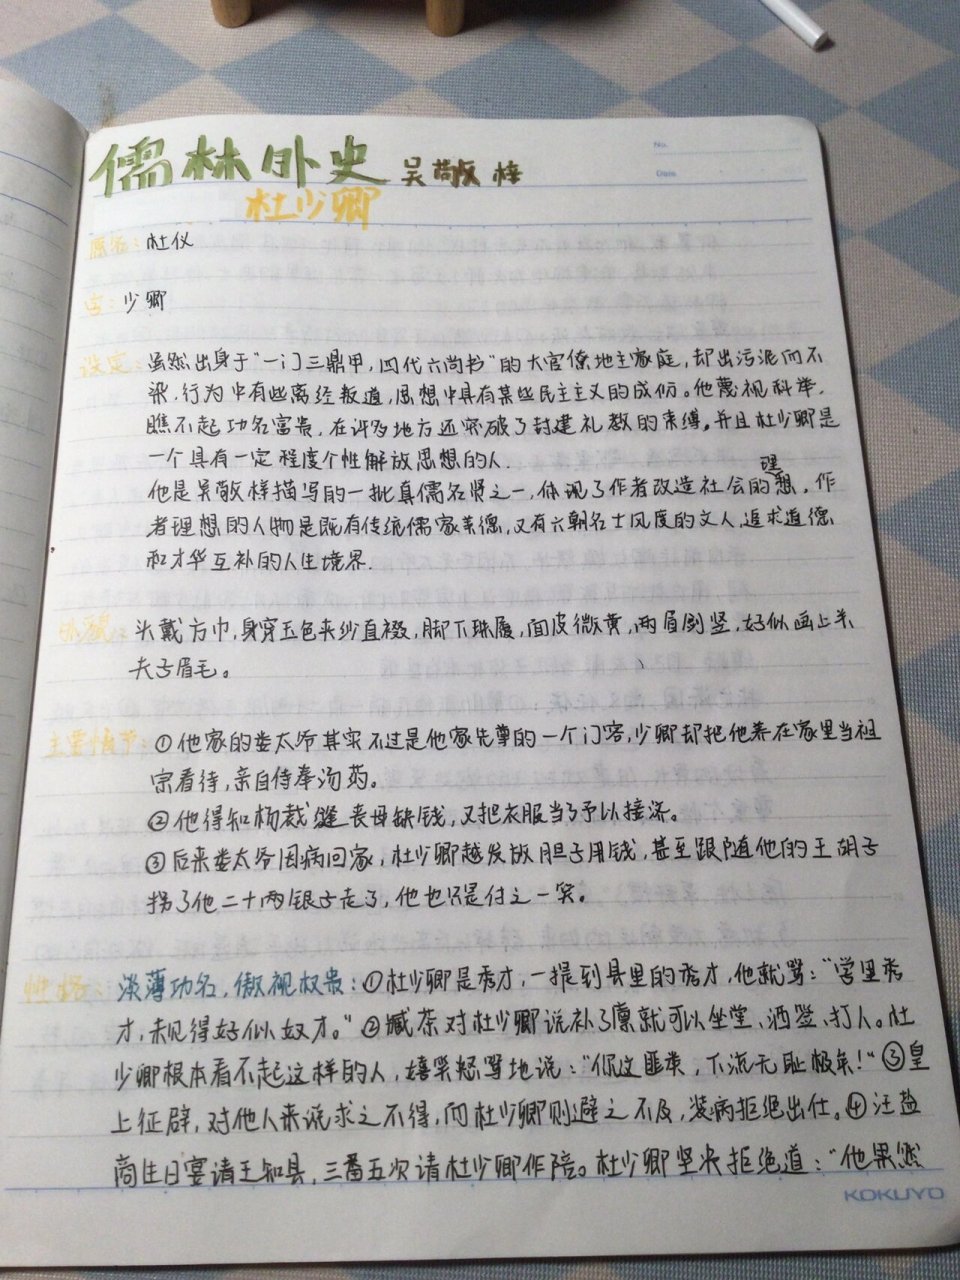 No.
Date
儒林外史 吴敬梓
杜少卿
原名：杜仪
字：少卿
设定：虽然出身于“一门三鼎甲，四代六尚书”的大官僚地主家庭，却出污泥而不
染，行为中有些离经叛道，思想中具有某些民主主义的成份。他蔑视科举，
瞧不起功名富贵，在许多地方还突破了封建礼教的束缚。并且杜少卿是
一个具有一定程度个性解放思想的人．
他是吴敬梓描写的一批真儒名贤之一，体现了作者改造社会的理想，作
者理想的人物是既有传统儒家美德，又有六朝名士风度的文人，追求道德
和才华互补的人生境界．
外貌：头戴方巾，身穿玉色夹纱直裰，脚下珠履，面皮微黄，两眉剑竖，好似画上关
夫子眉毛。
主要情节：①他家的娄太爷其实不过是他家先尊的一个门客，少卿却把他养在家里当祖
宗看待，亲自侍奉汤药。
②他得知杨裁缝丧母缺钱，又把衣服当了予以接济。
③后来娄太爷因病回家，杜少卿越发放胆子用钱，甚至跟随他的王胡子
拐了他二十两银子走了，他也只是付之一笑。
性格：淡薄功名，傲视权贵：①杜少卿是秀才，一提到县里的秀才，他就骂：“学里秀
才，未见得好似奴才。”②臧荼对杜少卿说补了廪就可以坐堂、洒签、打人。杜
少卿根本看不起这样的人，嬉笑怒骂地说：“你这匪类，下流无耻极矣！”③皇
上征辟，对他人来说求之不得，而杜少卿则避之不及，装病拒绝出仕。④汪盐
商生日宴请王知县，三番五次请杜少卿作陪。杜少卿坚决拒绝道：“他果然
KOKUYO